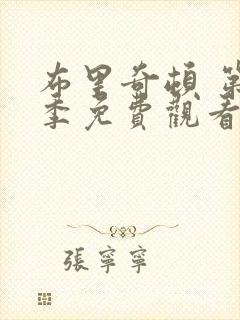 布里奇頓 第
季免費觀看
張寧寧